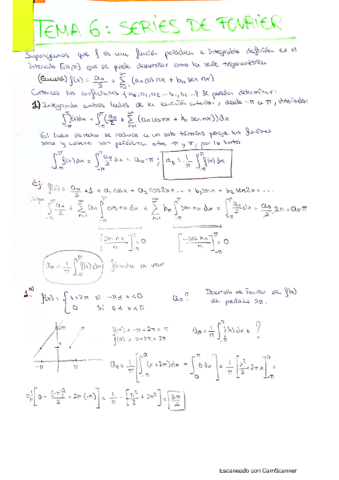 TEMA 6: SERIES DE FOURIER
Supongamos que f es una función periódica e integrable definida en el
intervalo [-π,π] que se puede desarrollar como la serie trigonométrica
f(x) = a₀/2 + Σ (aₙ cos nx + bₙ sen nx)
Entonces los coeficientes {a₀, a₁, a₂ ... b₁, b₂ ...} se pueden determinar:
1) Integrando ambos lados de la ecuación anterior, desde -π a π, obtenemos
∫f(x)dx = ∫(a₀/2 + Σ (aₙ cos nx + bₙ sen nx))dx
El lado derecho se reduce a un solo término porque las funciones
seno y coseno son periódicas entre -π y π, por lo tanto
∫f(x)dx = ∫ a₀/2 dx = a₀·π ; a₀ = 1/π ∫f(x)dx
Ej: f(x) = a₀/2 · 1 + a₁ cos x + a₂ cos 2x + ... + b₁ sen x + b₂ sen 2x + ...
∫ a₀/2 dx + Σ aₙ ∫ cos nx dx + Σ bₙ ∫ sen nx dx = ∫ a₀/2 dx = a₀/2 2π = a₀·π
[sen nx / n] = 0 [-cos nx / n] = 0
a₀ = 1/π ∫ f(x)dx fórmula a usar
f(x) = { x+2π si -π ≤ x < 0 a₀? Desarrollo de Fourier de f(x)
0 si 0 ≤ x < π de periodo 2π.
f(-π) = -π + 2π = π a₀ = 1/π ∫ f(x)dx ?
f(0) = 0 + 2π = 2π
a₀ = 1/π [∫ (x+2π)dx + ∫ 0 dx] = 1/π [x²/2 + 2πx] =
= 1/π [0 - (-π)²/2 + 2π(-π)] = 1/π · [π²/2 + 2π²] = 3π/2
Escaneado con CamScanner